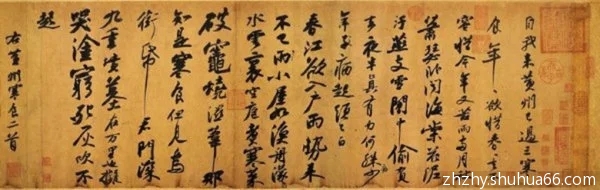 自我來黃州已過三寒
食年年欲惜春春去不
容惜今年又苦雨兩月秋
蕭瑟臥聞海棠花泥
汙燕支雪闇中偷負
去夜半真有力何殊少
年子病起頭已白
春江欲入戶雨勢來
不已雨小屋如漁舟濛濛
水雲裏空庖煮寒菜
破竈燒濕葦那
知是寒食但見烏
銜帋君門深
九重墳墓在萬里也擬
哭塗窮死灰吹不
起
右黃州寒食二首
zhzhy.shuhua66.com